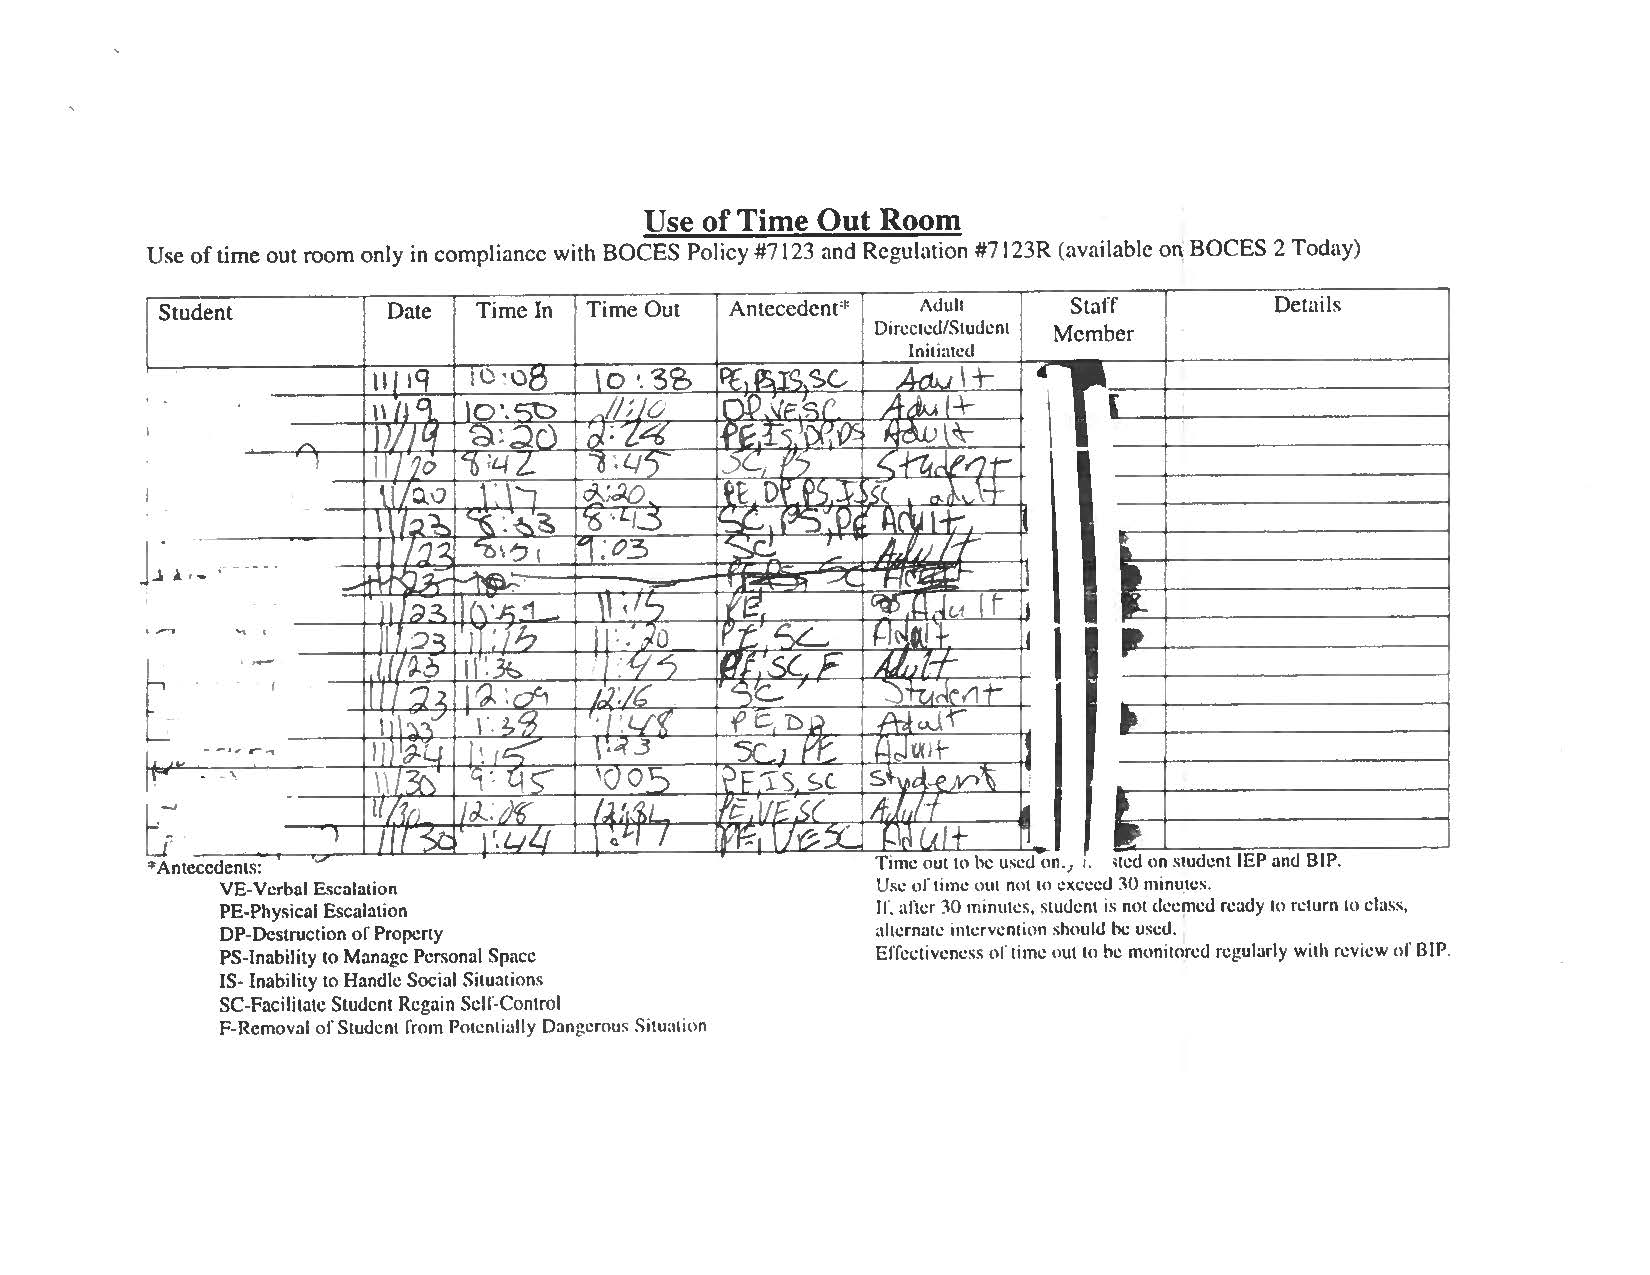 Use of Time Out Room
Use of time out room only in compliance with BOCES Policy #7123 and Regulation #7123R (available on BOCES 2 Today)
Student Date Time In Time Out Antecedent* Adult Directed/Student Initiated Staff Member Details
11/19 10:08 10:38 PE, PS, IS, SC Adult
11/19 10:50 11:10 DP, VE, SC Adult
11/19 2:20 2:28 PE, IS, DP, DS Adult
11/20 8:42 8:45 SC, PS Student
11/20 1:17 2:20 PE, DP, PS, IS SC adult
11/23 8:33 8:43 SC, PS, PE Adult
11/23 8:51 9:03 SC Adult
11/23 SC
11/23 10:51 11:15 Adult
11/23 11:15 11:20 PE, SC Adult
11/23 11:36 1:45 PE, SC, F Adult
11/23 12:09 12:16 SC Student
11/23 1:38 1:48 PE, DP Adult
11/24 1:15 1:23 SC, PE Adult
11/30 9:45 1005 PE, IS, SC Student
11/30 12:08 PE, VE, SC Adult
11/30 1:44 :47 PE, VE SC Adult
*Antecedents:
VE-Verbal Escalation
PE-Physical Escalation
DP-Destruction of Property
PS-Inability to Manage Personal Space
IS- Inability to Handle Social Situations
SC-Facilitate Student Regain Self-Control
F-Removal of Student from Potentially Dangerous Situation
Time out to be used on on student IEP and BIP.
Use of time out not to exceed 30 minutes.
If, after 30 minutes, student is not deemed ready to return to class,
alternate intervention should be used.
Effectiveness of time out to be monitored regularly with review of BIP.